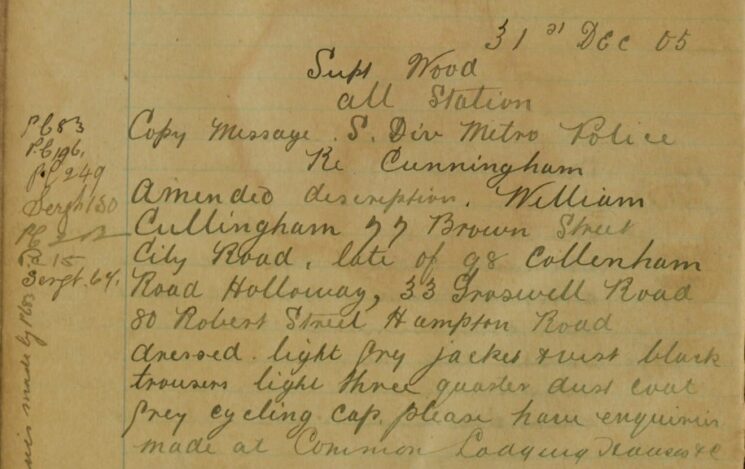 31st Dec 05
Supt Wood
all Station
Copy Message. S. Div Metro Police
Re Cunningham
Amended description. William
Cullingham 77 Brown Street
City Road, late of 98 Collenham
Road Holloway, 33 Groswell Road
80 Robert Street Hampton Road
dressed light grey jacket & vest black
trousers light three quarter dust coat
grey cycling cap, please have enquiries
made at Common Lodging Houses &c
PC 83
PC 196
PC 249
Sergt 130
PC
15
Sergt. 64.
made by PC 83